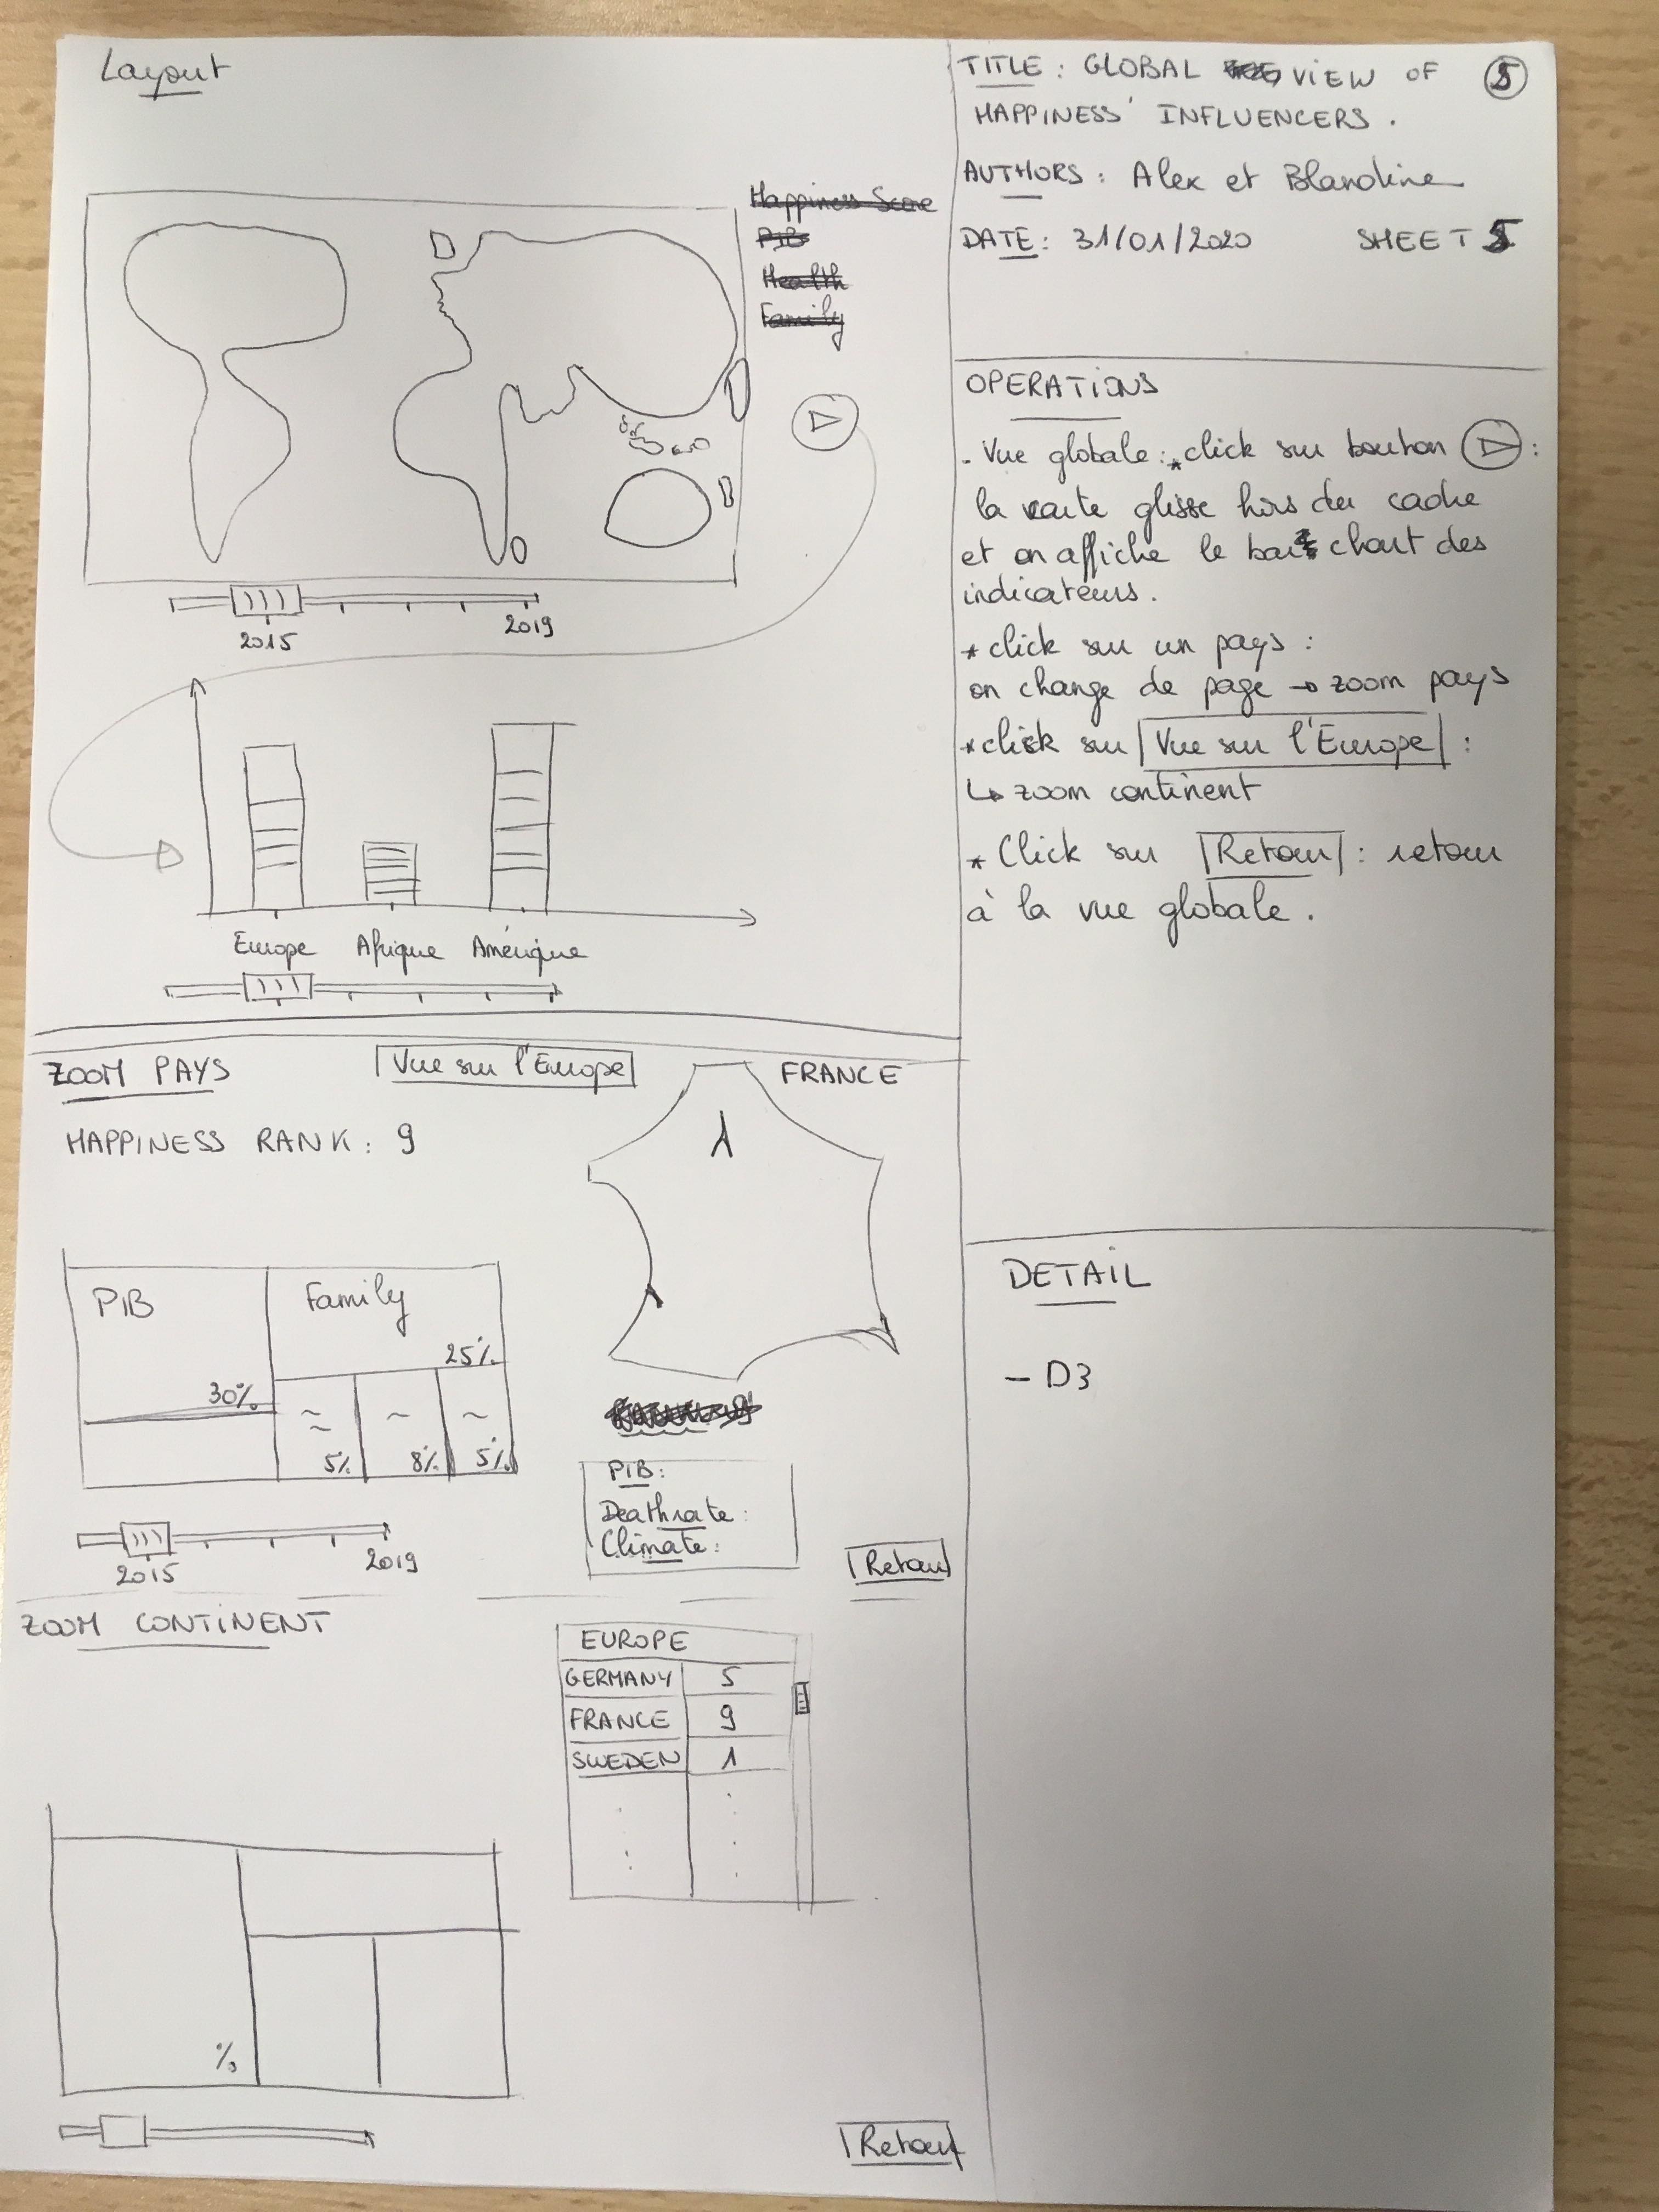 Layout
Happiness Score
PIB
Health
Family
2015 2019
Europe Afrique Amérique
ZOOM PAYS
Vue sur l'Europe
FRANCE
HAPPINESS RANK : 9
1
PIB
30%
Family
25%
5% 8% 5%
2015 2019
PIB :
Deathrate :
Climate :
Retour
ZOOM CONTINENT
EUROPE
GERMANY 5
FRANCE 9
SWEDEN 1
%
Retour
TITLE : GLOBAL VIEW OF 5
HAPPINESS' INFLUENCERS .
AUTHORS : Alex et Blandine
DATE : 31/01/2020 SHEET 5
OPERATIONS
- Vue globale : * click sur bouton :
la carte glisse hors du cadre
et on affiche le bar chart des
indicateurs .
* click sur un pays :
on change de page → zoom pays
* click sur Vue sur l'Europe :
↳ zoom continent
* Click sur Retour : retour
à la vue globale .
DETAIL
- D3